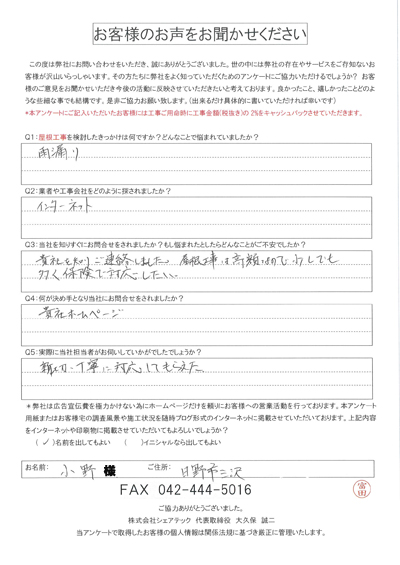 お客様のお声をお聞かせください
この度は弊社にお問い合わせをいただき、誠にありがとうございます。世の中には弊社の存在やサービスをご存知ないお
客様が沢山いらっしゃいます。その方たちに弊社をよく知っていただくためのアンケートにご協力いただけるでしょうか？ お客
様のご意見をお聞かせいただき今後の活動に反映させていただきたいと考えております。良かったこと、嬉しかったことどのよ
うな些細な事でも結構です。是非ご協力お願い致します。（出来るだけ具体的に書いていただければ幸いです）
*本アンケートにご記入いただいたお客様には工事ご用命時に工事金額(税抜き)の 2%をキャッシュバックさせていただきます。
Q1:屋根工事を検討したきっかけは何ですか？どんなことで悩まれていましたか？
雨漏り
Q2:業者や工事会社をどのように探されましたか？
インターネット
Q3:当社を知りすぐにお問合せをされましたか？もし悩まれたとしたらどんなことがご不安でしたか？
貴社を知りご連絡しました。屋根工事は高額なので少しでも
多く保険で対応したい。
Q4:何が決め手となり当社にお問合せをされましたか？
貴社ホームページ
Q5:実際に当社担当者がお伺いしていかがでしたでしょうか？
親切、丁寧に対応してもらえた。
＊弊社は広告宣伝費を極力かけない為にホームページだけを頼りにお客様への営業活動を行っております。本アンケート
用紙またはお客様宅の調査風景や施工状況を随時ブログ形式のインターネットに掲載させていただいております。上記内容
をインターネットや印刷物に掲載させていただいてもよろしいでしょうか？
（✓）名前を出してもよい （ ）イニシャルなら出してもよい
お名前： 小野 様 ご住所： 日野市三沢
FAX 042-444-5016
富田
ご協力ありがとうございました。
株式会社シェアテック 代表取締役 大久保 誠二
当アンケートで取得したお客様の個人情報は関係法規に基づき厳正に管理いたします。